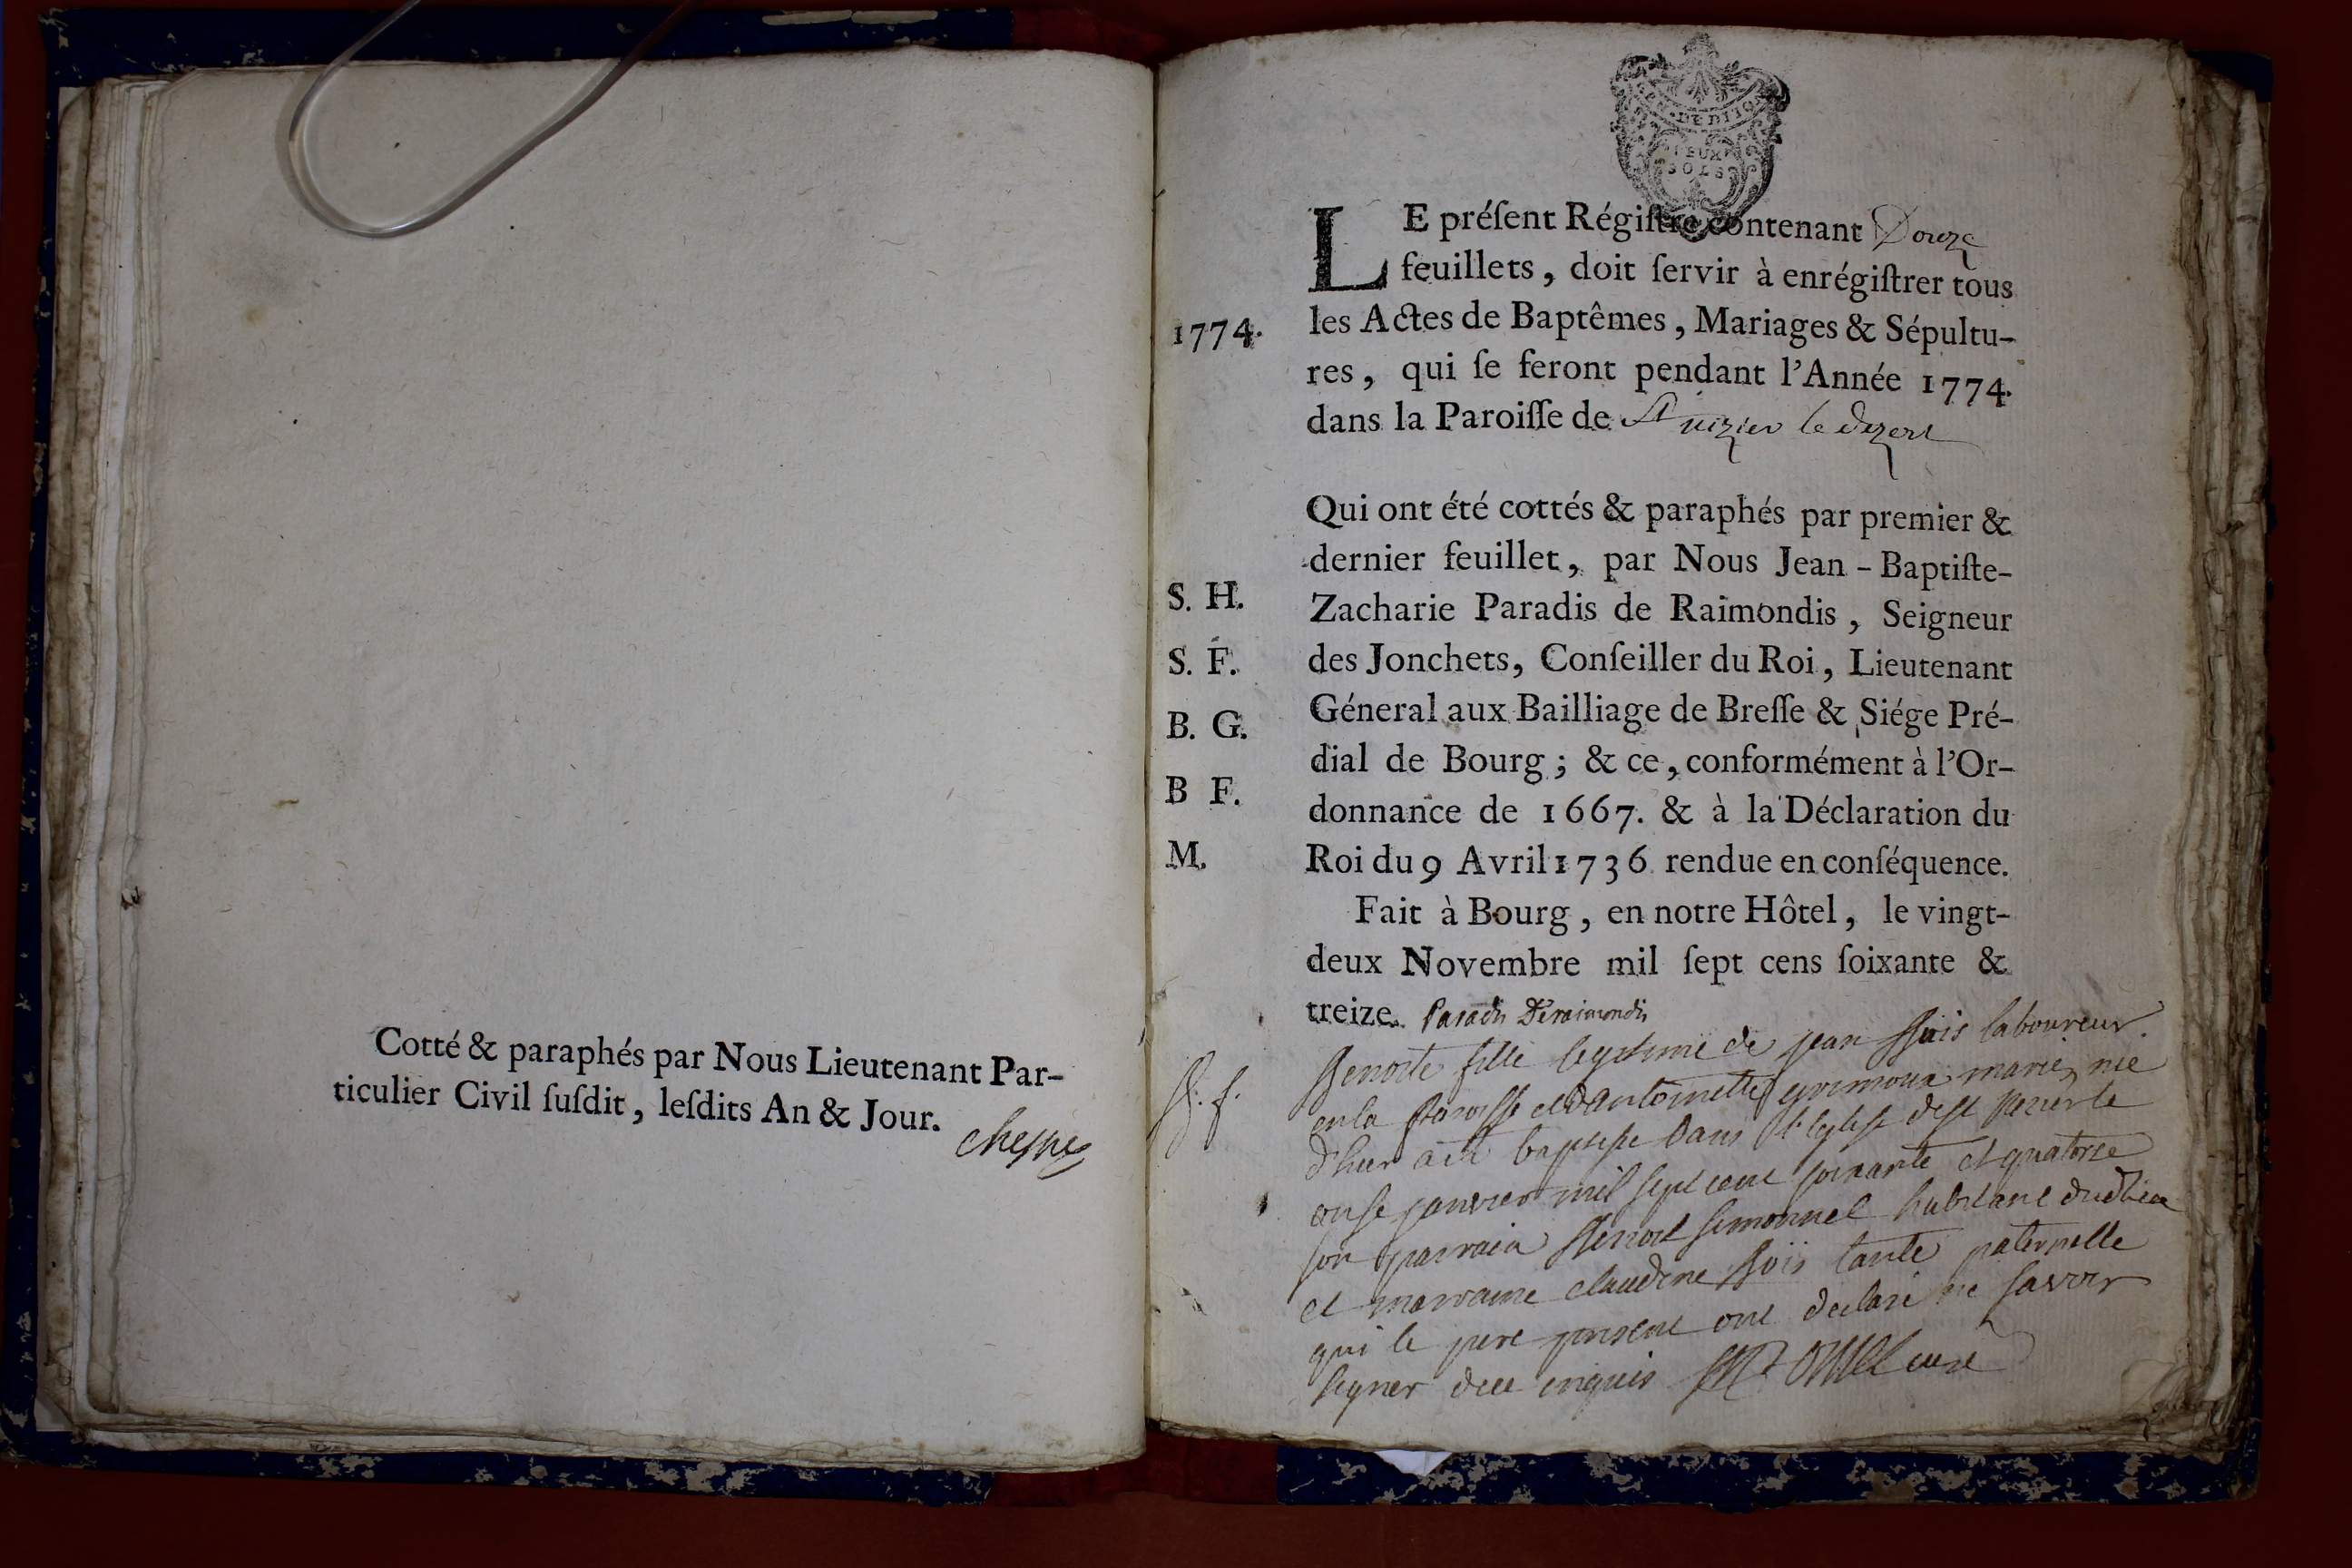 Cotté & paraphés par Nous Lieutenant Par-
ticulier Civil ſuſdit, leſdits An & Jour.
DEUX
SOLS
LE préſent Régiſtre contenant Douze
feuillets, doit ſervir à enrégiſtrer tous
1774. les Actes de Baptêmes, Mariages & Sépultu-
res, qui ſe feront pendant l'Année 1774.
dans la Paroiſſe de St nizier le dezert
Qui ont été cottés & paraphés par premier &
dernier feuillet, par Nous Jean-Baptiſte-
S. H. Zacharie Paradis de Raimondis, Seigneur
S. F. des Jonchets, Conſeiller du Roi, Lieutenant
B. G. Géneral aux Bailliage de Breſſe & Siége Pré-
B F. dial de Bourg; & ce, conformément à l'Or-
donnance de 1667. & à la Déclaration du
M. Roi du 9 Avril 1736 rendue en conſéquence.
Fait à Bourg, en notre Hôtel, le vingt-
deux Novembre mil ſept cens ſoixante &
treize. Paradis Deraimondis
B. f. Benoite fille legitime de jean laboureur
en la paroisse et dantoinette mariés née
d'hier a eté baptisée dans l'eglise de st nizier le
onse janvier mil sept cent soixante et quatorze
son parrain Benoit simonnel habitant dudit lieu
et marraine claudine tante paternelle
qui le pere present ont declaré ne savoir
signer de ce enquis curé